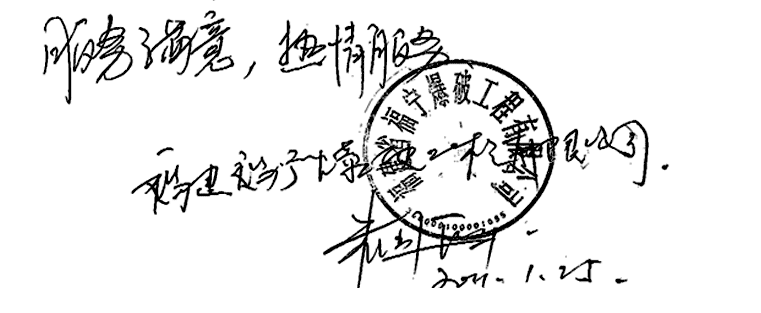 服务满意，热情服务
福建福宁爆破工程有限公司.
福建省福宁爆破工程有限公司
1.25.